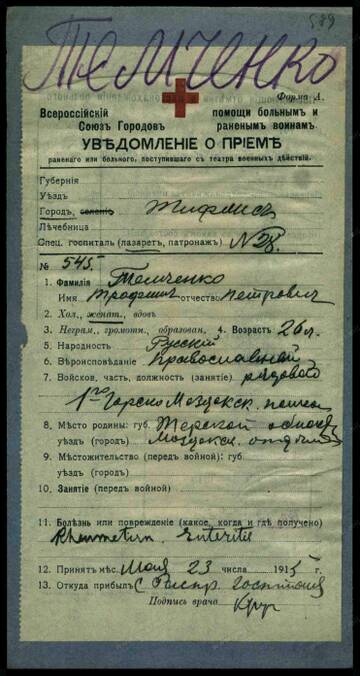 589
ТЕМЧЕНКО
Форма А.
Всероссійскій помощи больнымъ и
Союзъ Городовъ раненымъ воинамъ.
УВѢДОМЛЕНІЕ О ПРІЕМѢ
раненаго или больного, поступившаго съ театра военныхъ дѣйствій.
Губернія
Уѣздъ
Городъ, селеніе Тифлисъ
Лѣчебница
Спец. госпиталь (лазаретъ, патронажъ) № 28.
№ 545
1. Фамилія Темченко
Имя Трофимъ отчество Петровичъ
2. Хол., женат., вдовъ
3. Неграм., грамотн., образован, 4. Возрастъ 26 л.
5. Народность Русскій
6. Вѣроисповѣданіе Православный
7. Войсков, часть, должность (занятіе) рядовой
1го Горско Моздокск.
8. Мѣсто родины: губ. Терской област
уѣздъ (город) Моздокск. отдѣла
9. Мѣстожительство (передъ войной): губ
уѣздъ (город.)
10. Занятіе (передъ войной)
11. Болѣзнь или поврежденіе (какое, когда и гдѣ получено)
Enterit
12. Принятъ мѣс. Мая 23 числа 1915
13. Откуда прибылъ С Распр. Госпиталя
Подпись врача